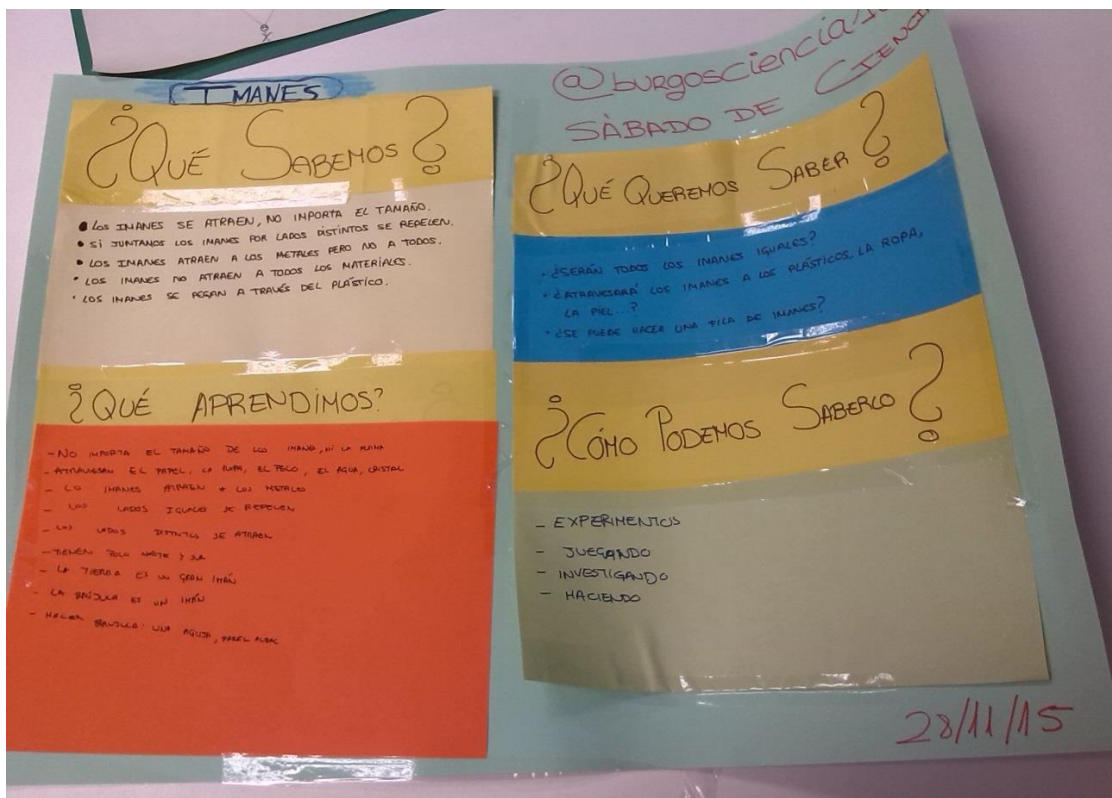 IMANES
¿QUÉ SABEMOS?
• LOS IMANES SE ATRAEN, NO IMPORTA EL TAMAÑO.
• SI JUNTAMOS LOS IMANES POR LADOS DISTINTOS SE REPELEN.
• LOS IMANES ATRAEN A LOS METALES PERO NO A TODOS.
• LOS IMANES NO ATRAEN A TODOS LOS MATERIALES.
• LOS IMANES SE PEGAN A TRAVÉS DEL PLÁSTICO.
¿QUÉ APRENDIMOS?
- NO IMPORTA EL TAMAÑO DE LOS IMANES, NI LA FORMA
- ATRAVIESAN EL PAPEL, LA ROPA, EL PELO, EL AGUA, CRISTAL
- LO IMANES ATRAEN A LOS METALES
- LOS LADOS IGUALES SE REPELEN
- LOS LADOS DISTINTOS SE ATRAEN
- TIENEN POLO NORTE Y SUR
- LA TIERRA ES UN GRAN IMÁN
- LA BRÚJULA ES UN IMÁN
- HACER BRÚJULA: UNA AGUJA, PAPEL ALBAL
@burgosciencia
SÁBADO DE CIENCIA
¿QUÉ QUEREMOS SABER?
• ¿SERÁN TODOS LOS IMANES IGUALES?
• ¿ATRAVESARÁ LOS IMANES A LOS PLÁSTICOS, LA ROPA,
LA PIEL...?
• ¿SE PUEDE HACER UNA FILA DE IMANES?
¿CÓMO PODEMOS SABERLO?
- EXPERIMENTOS
- JUEGANDO
- INVESTIGANDO
- HACIENDO
28/11/15